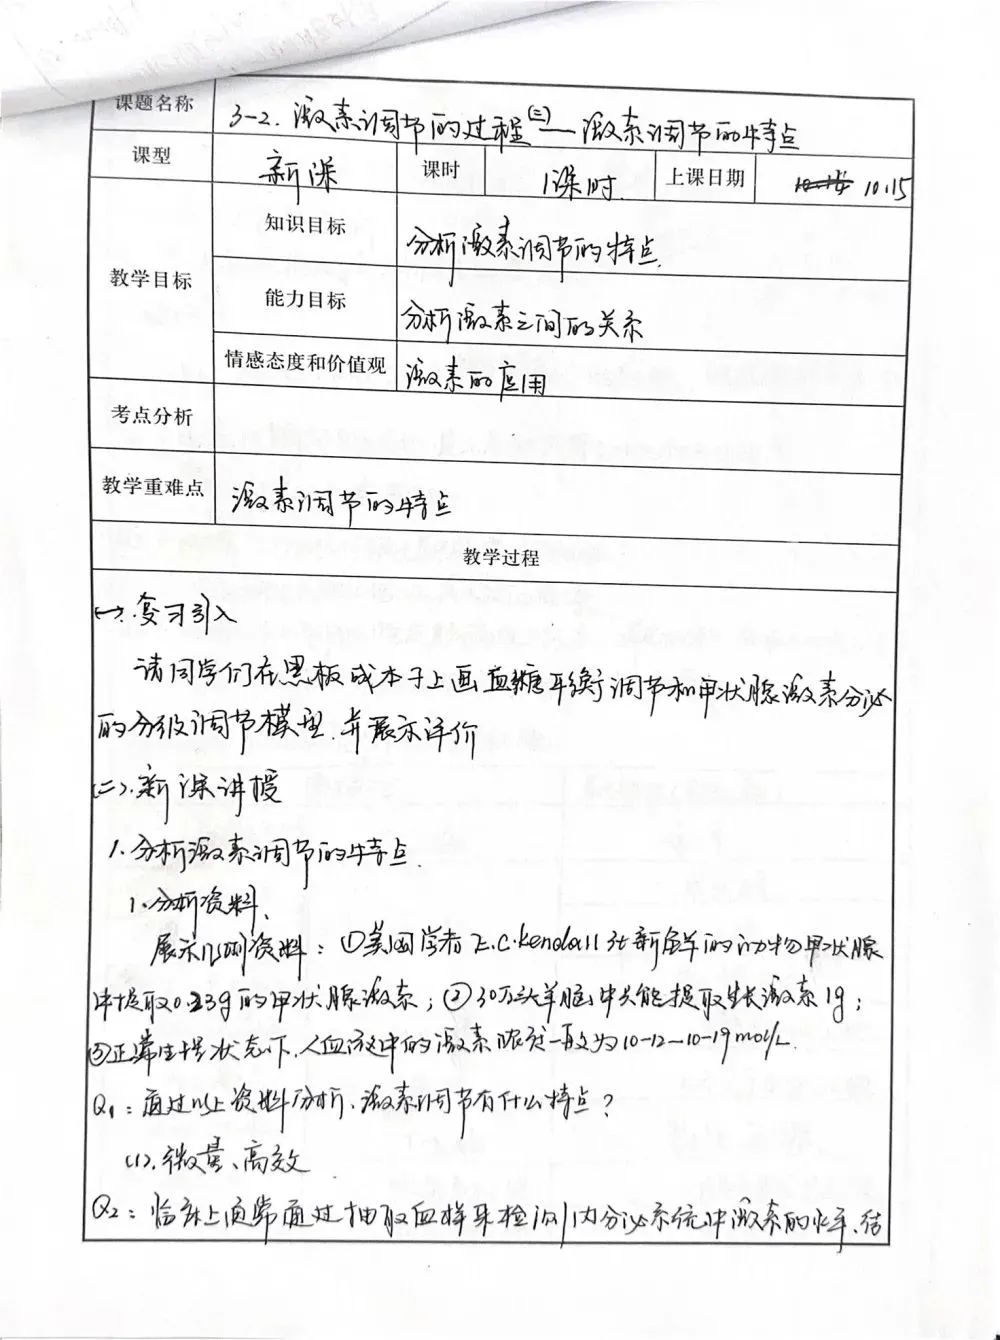 课题名称 3-2. 激素调节的过程(三)——激素调节的特点
课型 新课 课时 1课时. 上课日期 10.15
教学目标
知识目标 分析激素调节的特点.
能力目标 分析激素之间的关系
情感态度和价值观 激素的应用
考点分析
教学重难点 激素调节的特点
教学过程
(一).复习引入
请同学们在黑板或本子上画血糖平衡调节和甲状腺激素分泌
的分级调节模型.并展示评价
(二).新课讲授
1.分析激素调节的特点.
1.分析资料、
展示几则资料：①美国学者 E.C.Kendall 3t新鲜的动物甲状腺
中提取0.23g的甲状腺激素；②30万头羊脑中共能提取生长激素1g；
③正常生理状态下.人血液中的激素浓度一般为10-12—10-19mol/L.
Q1：通过以上资料分析、激素调节有什么特点？
(1).微量、高效
Q2：临床上通常通过抽取血样来检测内分泌系统中激素的水平、结